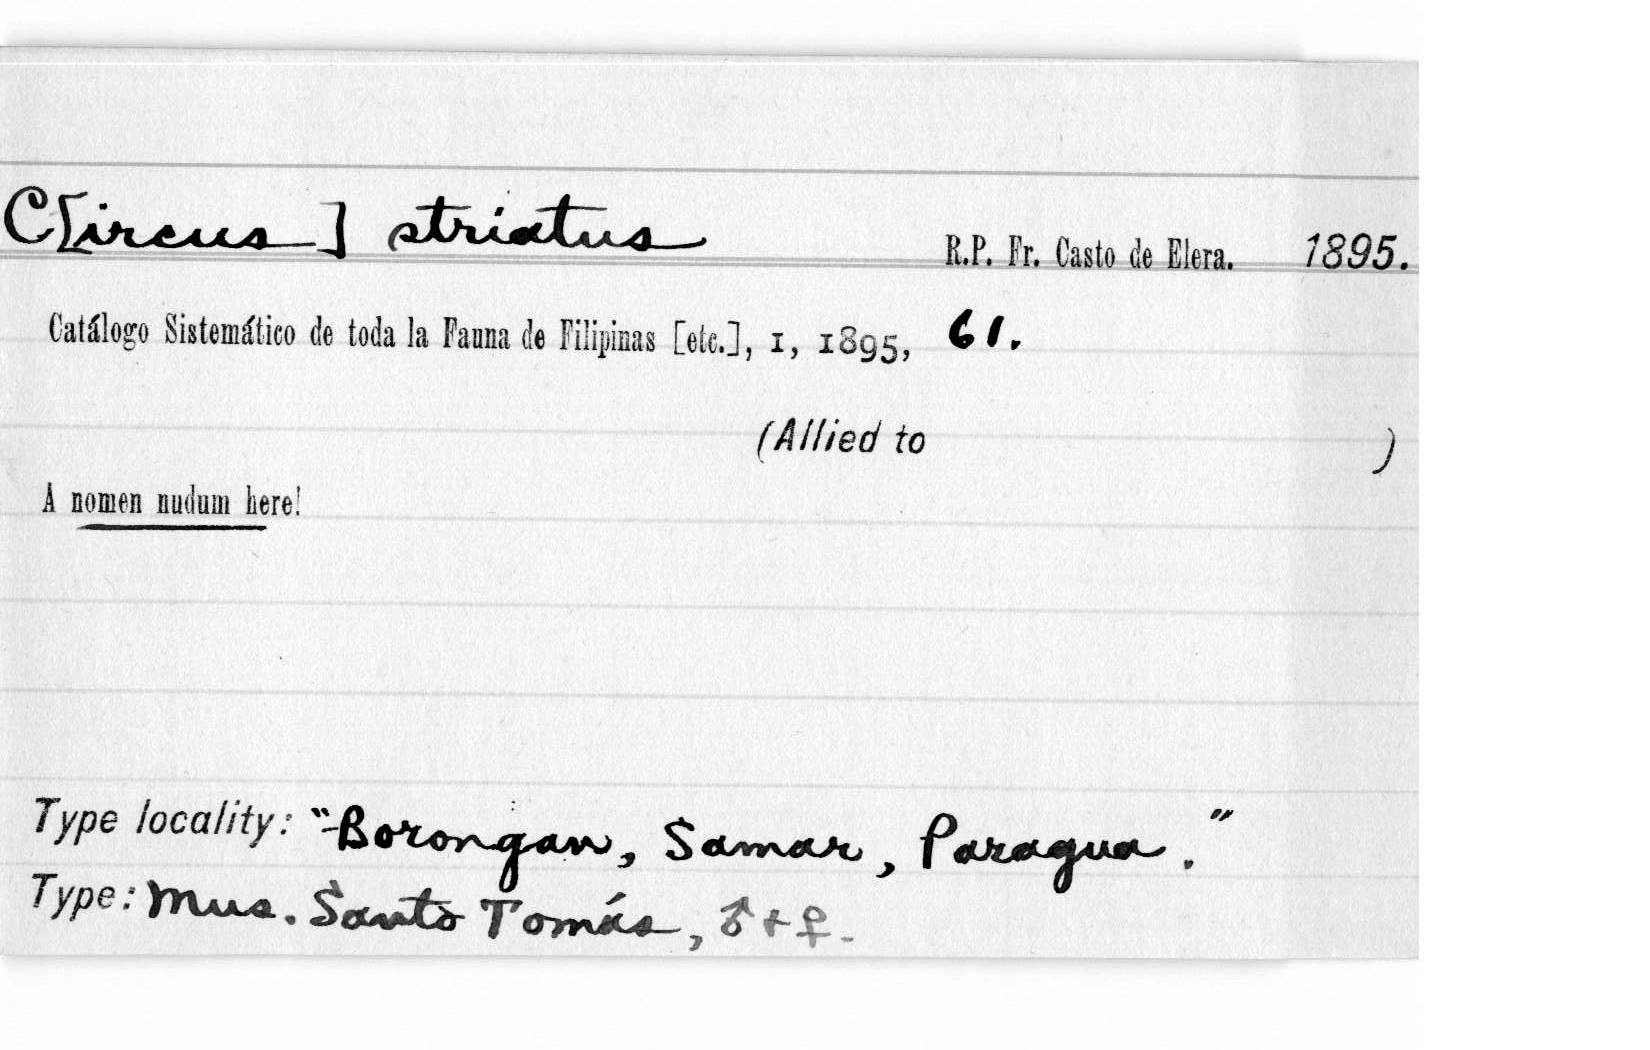 C[ircus] striatus R.P. Fr. Casto de Elera. 1895.
Catálogo Sistemático de toda la Fauna de Filipinas [etc.], 1, 1895, 61.
(Allied to )
A nomen nudum here!
Type locality: "Borongan, Samar, Paragua."
Type: Mus. Santo Tomás, ♂+♀.